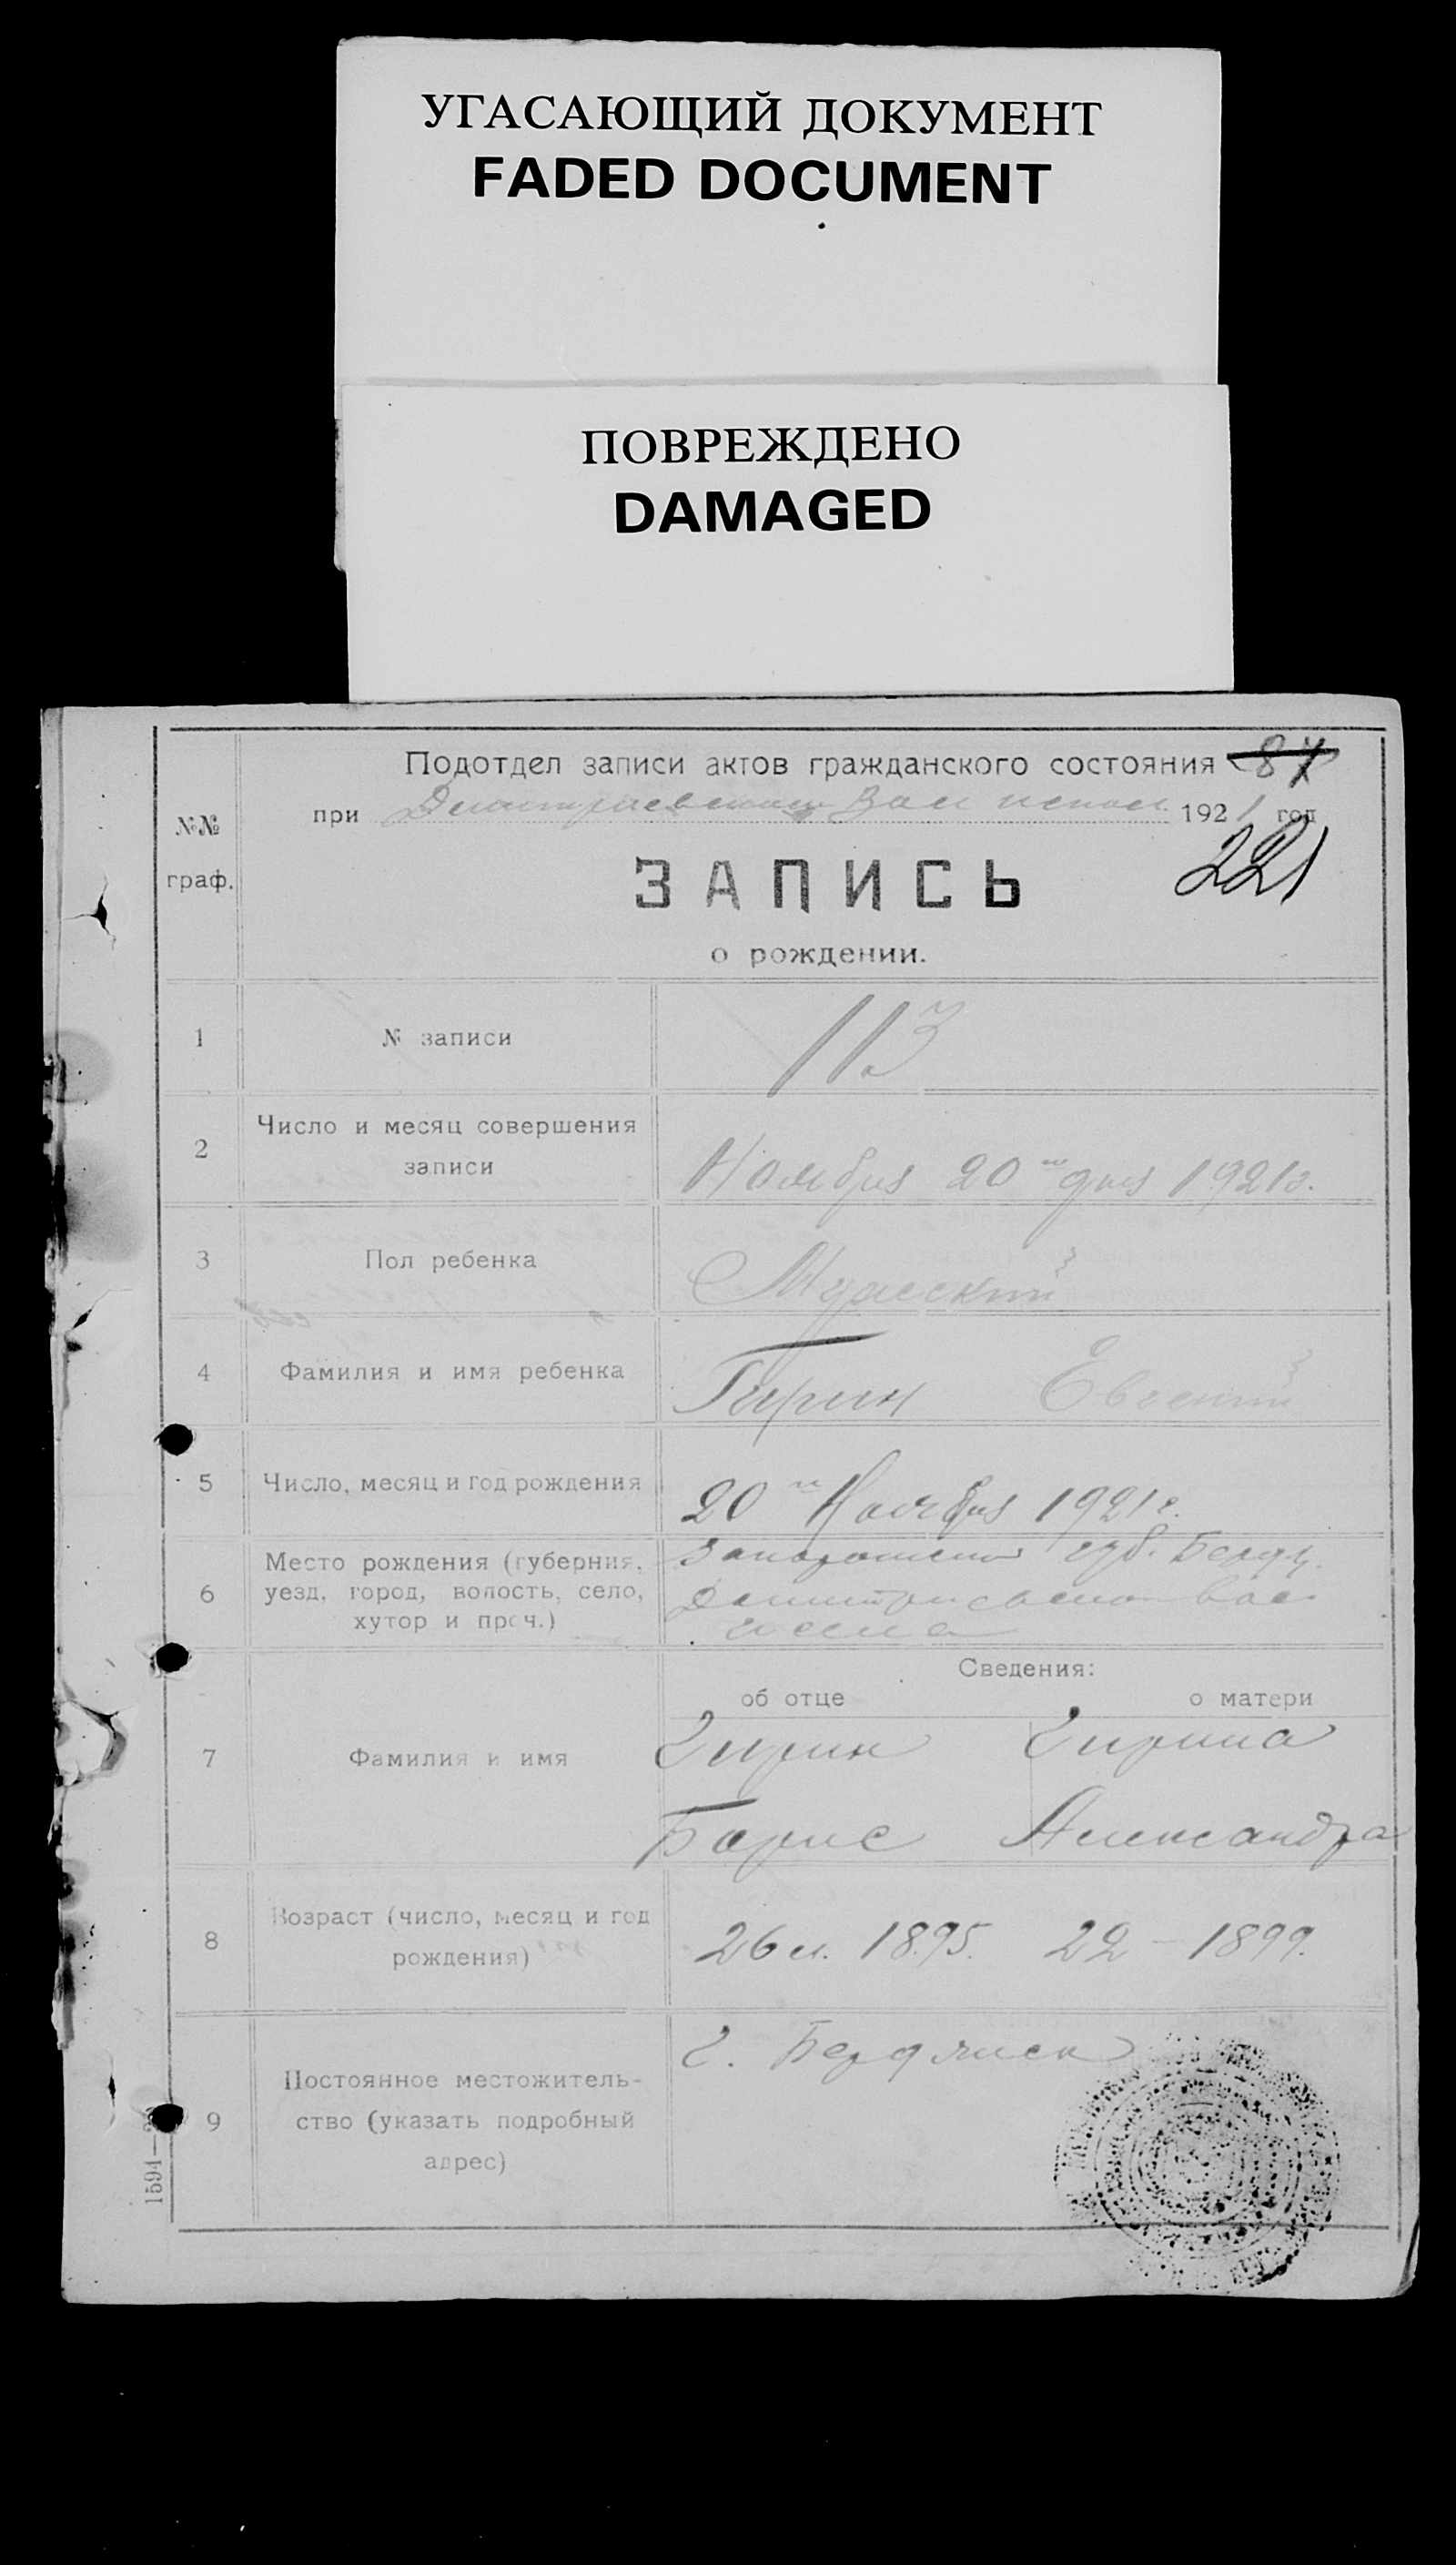 УГАСАЮЩИЙ ДОКУМЕНТ
FADED DOCUMENT
ПОВРЕЖДЕНО
DAMAGED
Подотдел записи актов гражданского состояния 87
при Дмитриевском Вол испол. 1921 год
№№
граф.
221
ЗАПИСЬ
о рождении.
1 № записи 113
2 Число и месяц совершения
записи Ноября 20 дня 1921г.
3 Пол ребенка Мужеский
4 Фамилия и имя ребенка Гирин Евгений
5 Число, месяц и год рождения 20 Ноября 1921 г.
6 Место рождения (губерния,
уезд, город, волость, село,
хутор и проч.)
губ. Бердя.
Сведения:
об отце о матери
7 Фамилия и имя
Гирин Гирина
Борис Александра
8 Возраст (число, месяц и год
рождения)
26 л. 1895. 22 - 1899.
9 Постоянное местожитель-
ство (указать подробный
адрес)
г. Бердянск
1594